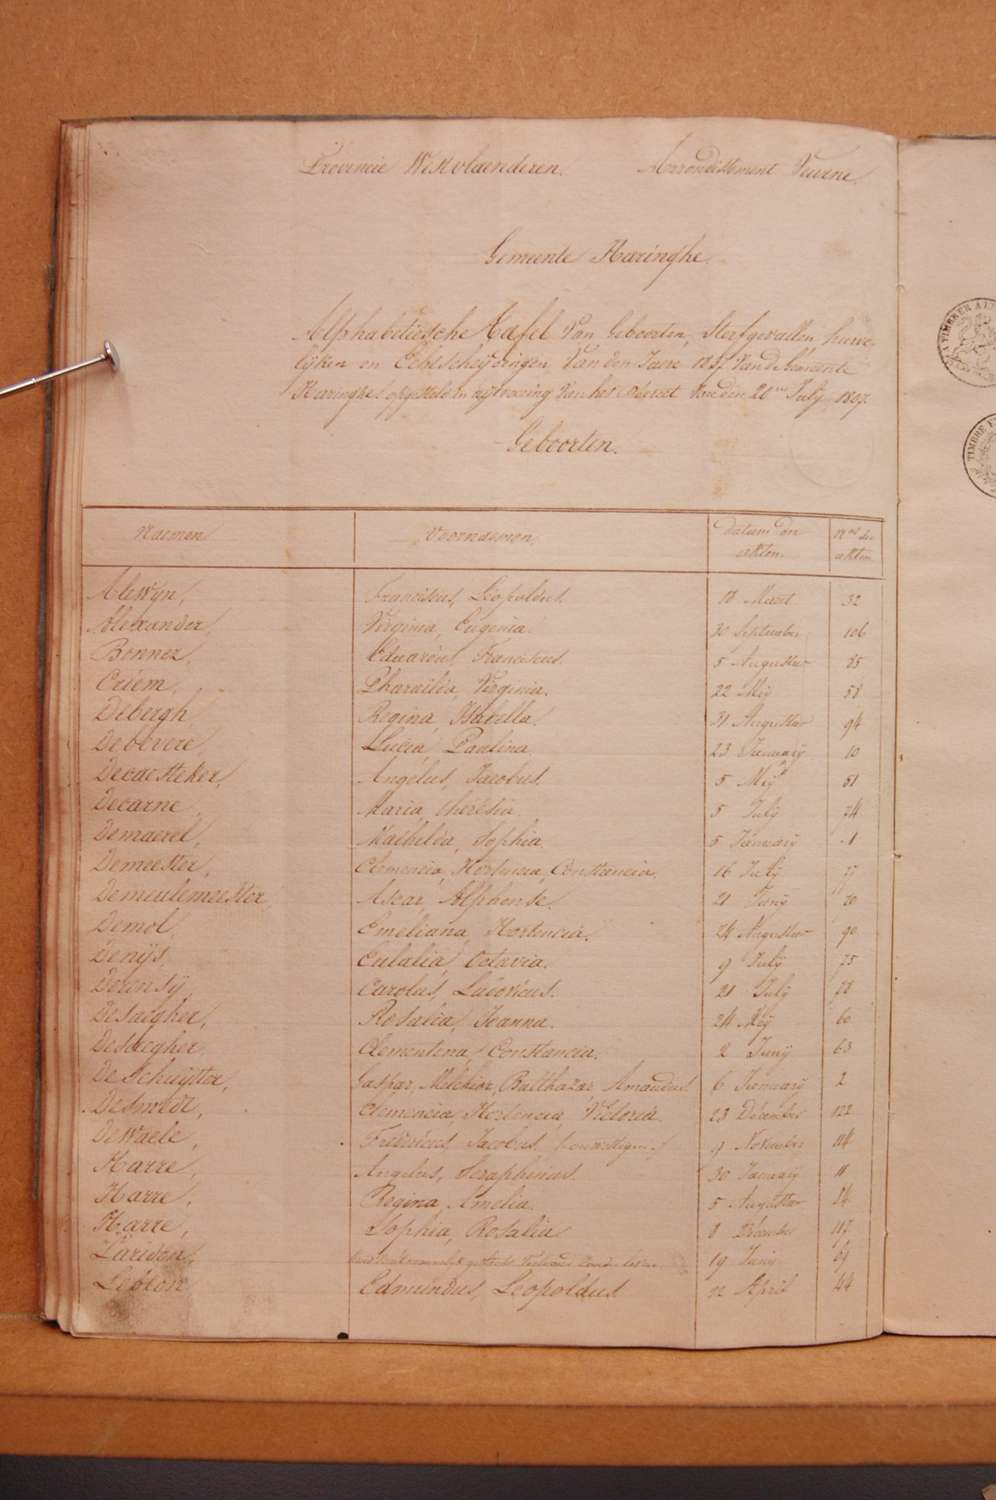 Provincie Westvlaenderen. Arrondissement Veurne.
Gemeente Haringhe.
Alphabetiesche Tafel van Geboorten, Sterfgevallen, huwe-
lijken en Echtscheijdingen, van den Jaere van de Gemeente
Haringhe, opgesteld in uijtvoering van het decreet van den 20en July 1807.
Geboorten.
Naemen Voornaemen. Datum der akten. Nos der akten.
Alewyn, Franciscus, Leopoldus. 18 Maert 32
Alexander, Virginia, Eugenia. 30 September 106
Bonnez, Eduardus, Franciscus. 5 Augustus 85
Criem, Pharaïlda, Virginia. 22 Mey 58
Debergh, Regina, Isabella. 31 Augustus 94
Debevere, Lucia, Paulina 23 January 10
Decaesteker, Angelus, Jacobus. 5 Mey 51
Decarne, Maria, theresia. 5 July 74
Demaerel, Mathilda, Sophia. 5 January 1
Demeester, Clemencia, Hortencia, Constancia. 16 July 77
Demeulemeester, Ascar, Alphonse. 21 Juny 70
Demol, Emeliana, Hortencia. 24 Augustus 90
Denijs, Eulalia, Octavia. 9 July 75
Derensy, Carolus, Ludovicus. 21 July 78
Desaegher, Rosalia, Joanna. 24 Mey 60
Desaegher, Clementina, Constancia. 2 Juny 63
DeSchuytter, Gaspar, Melchior, Balthazar Amandus 6 January 2
Desmedt, Clemencia, Hortencia, Victoria. 23 December 122
Dewaele, Fredericus, Jacobus, 9 November 114
Harre, Angelus, Seraphinus. 30 January 11
Harre, Regina, Amelia. 5 Augustus 84
Harre, Sophia, Rosalia 8 December 117
Laridon, 19 Juny 69
Lebron Edmundus, Leopoldus. 12 April 44